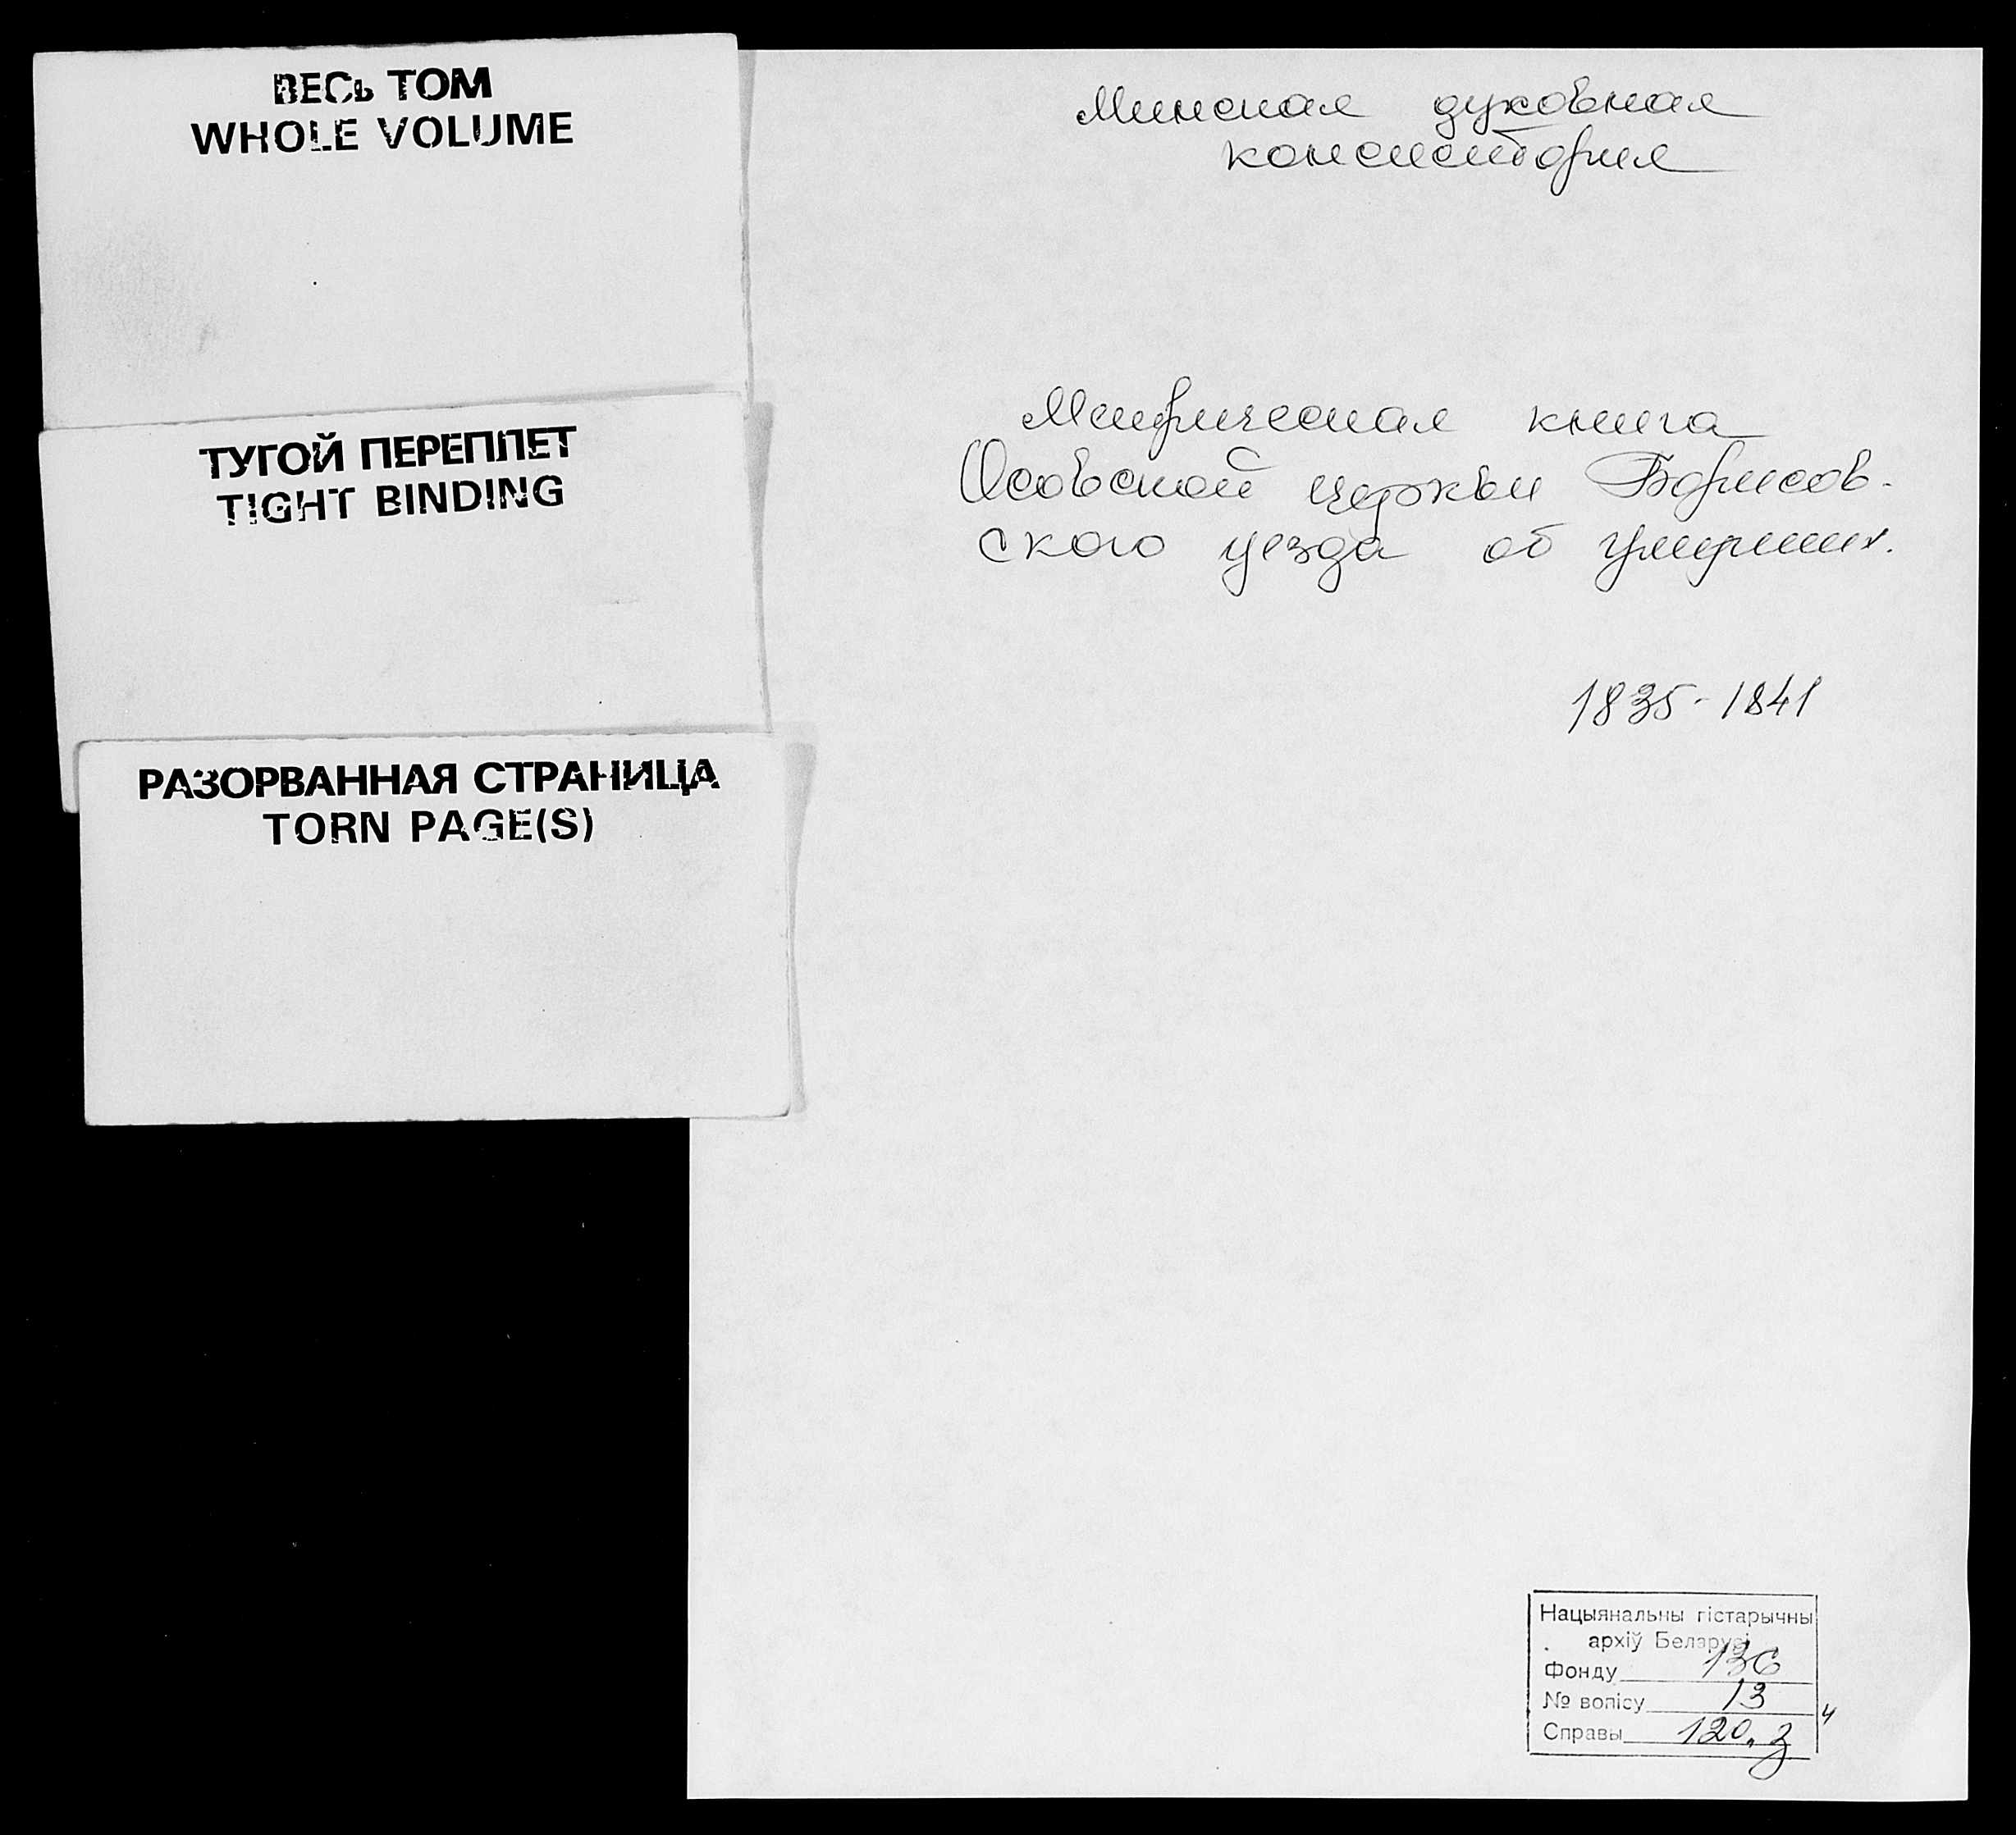 ВЕСЬ ТОМ
WHOLE VOLUME
ТУГОЙ ПЕРЕПЛЕТ
TIGHT BINDING
РАЗОРВАННАЯ СТРАНИЦА
TORN PAGE(S)
Минская духовная
консистория
Метрическая книга
Особской церкви Борисов-
ского уезда об умерших.
1835-1841
Нацыянальны гістарычны
архіў Беларусі
Фонду 136
№ вопісу 13
Справы 120